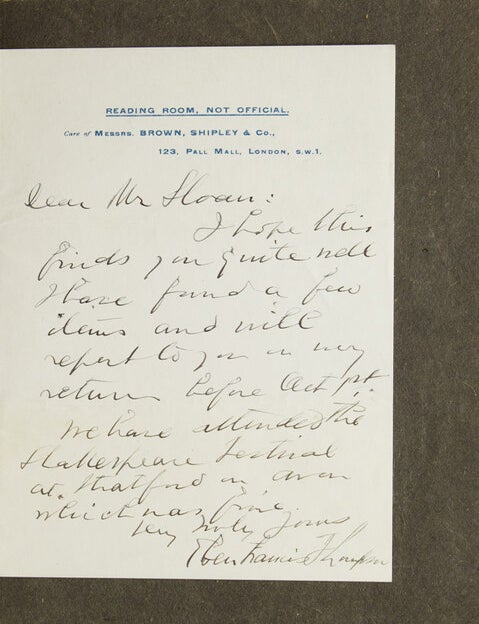 READING ROOM, NOT OFFICIAL.
Care of MESSRS. BROWN, SHIPLEY & Co.,
123, PALL MALL, LONDON, S.W.1.
Dear Mr Sloan:
I hope this
finds you quite well
I have found a few
items and will
report to you on my
return before Oct 1st.
We have attended the
Shakespeare Festival
at Stratford on Avon
which was fine.
Very truly yours
Eben Francis Thompson